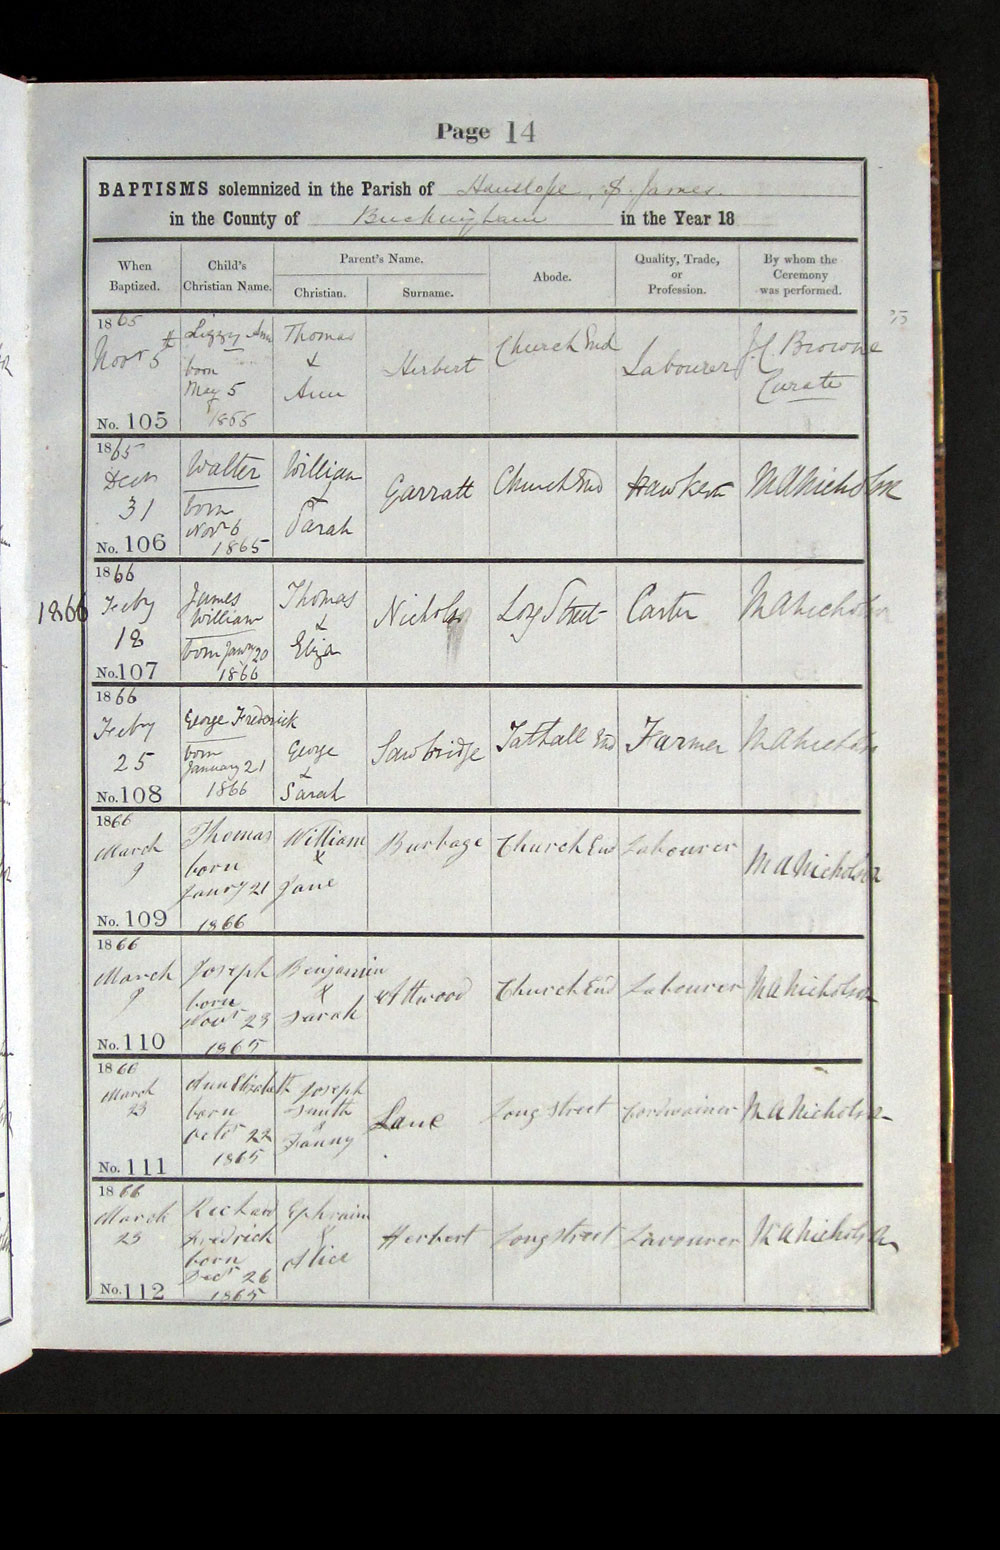 Page 14
BAPTISMS solemnized in the Parish of Hanslope, St. James.
in the County of Buckingham in the Year 18
When Baptized.
Child's Christian Name.
Parent's Name.
Christian.
Surname.
Abode.
Quality, Trade, or Profession.
By whom the Ceremony was performed.
1865
Novr 5th
No. 105
Lizzy Ann
born
May 5
1865
Thomas
&
Ann
Herbert
Church End
Labourer
J.C. Browne
Curate
35
1865
Decr
31
No. 106
Walter
born
Novr 6
1865
William
&
Sarah
Garratt
Church End
Hawker
M A Nicholson
1866
1866
Feby
18
No. 107
James
William
born Jany 20
1866
Thomas
&
Eliza
Nichols
Long Street
Carter
M A Nicholson
1866
Feby
25
No. 108
George Frederick
born
January 21
1866
George
&
Sarah
Sawbridge
Tathall End
Farmer
M A Nicholson
1866
March
9
No. 109
Thomas
born
Janry 21
1866
William
&
Jane
Burbage
Church End
Labourer
M A Nicholson
1866
March
9
No. 110
Joseph
born
Novr 23
1865
Benjamin
&
Sarah
Attwood
Church End
Labourer
M A Nicholson
1866
March
23
No. 111
Ann Elizabeth
born
Octr 22
1865
Joseph
Smith
&
Fanny
Lane
Long Street
Cordwainer
M A Nicholson
1866
March
23
No. 112
Richard
Fredrick
born
Decr 26
1865
Ephraim
&
Alice
Herbert
Long Street
Lavourer
M A Nicholson